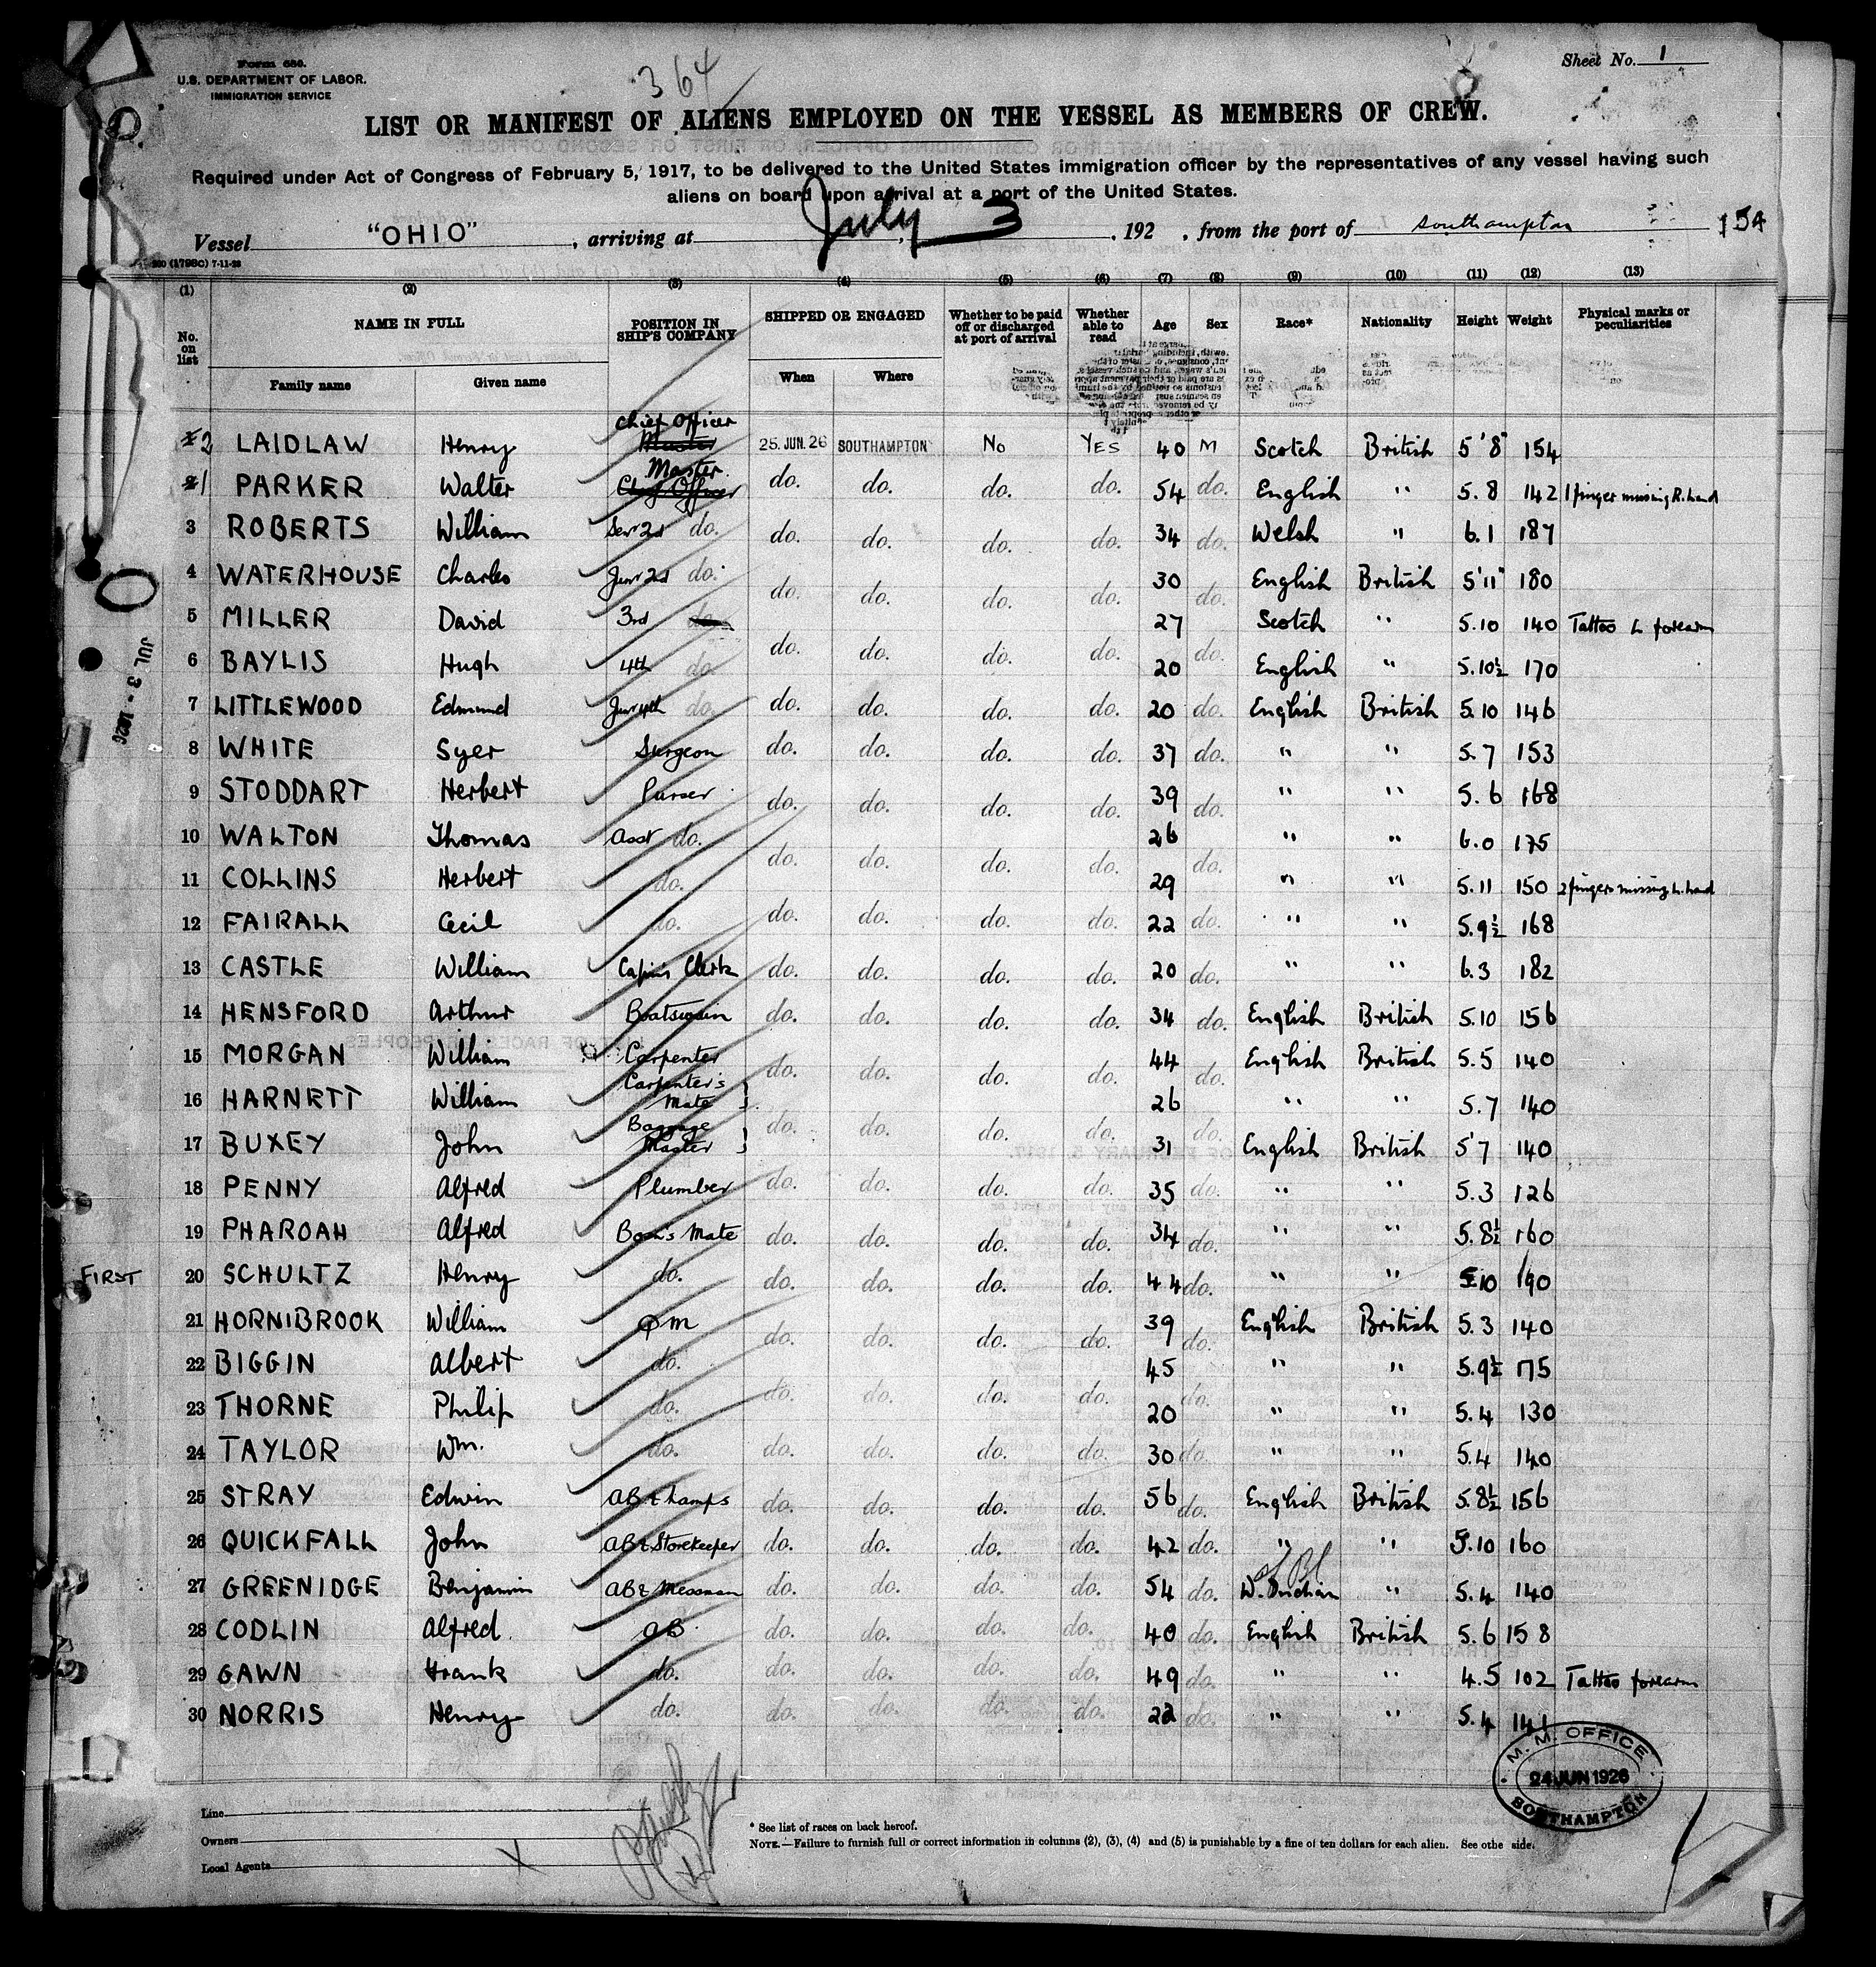 Form 680.
U.S. DEPARTMENT OF LABOR.
IMMIGRATION SERVICE
364
Sheet No. 1
LIST OR MANIFEST OF ALIENS EMPLOYED ON THE VESSEL AS MEMBERS OF CREW.
Required under Act of Congress of February 5, 1917, to be delivered to the United States immigration officer by the representatives of any vessel having such
aliens on board upon arrival at a port of the United States.
Vessel "OHIO", arriving at July 3, 192 , from the port of Southampton 154
(1) (2) (3) (4) (5) (6) (7) (8) (9) (10) (11) (12) (13)
No. on list NAME IN FULL POSITION IN SHIP'S COMPANY SHIPPED OR ENGAGED Whether to be paid off or discharged at port of arrival Whether able to read Age Sex Race* Nationality Height Weight Physical marks or peculiarities
Family name Given name When Where
2 LAIDLAW Henry Chief Officer Master 25. JUN. 26 SOUTHAMPTON No YES 40 M Scotch British 5'8" 154
1 PARKER Walter Master Chief Officer do. do. do. do. 54 do. English " 5.8 142 1 finger missing R. hand
3 ROBERTS William Senr 2nd do. do. do. do. do. 34 do. Welsh " 6.1 187
4 WATERHOUSE Charles Junr 2nd do. do. do. do. do. 30 do. English British 5'11" 180
5 MILLER David 3rd do. do. do. do. do. 27 do. Scotch " 5.10 140 Tattoo L forearm
6 BAYLIS Hugh 4th do. 20 English " 5.10½ 170
7 LITTLEWOOD Edmund Junr 4th do. do. do. do. do. 20 do. English British 5.10 146
8 WHITE Syer Surgeon do. do. do. do. 37 do. " " 5.7 153
9 STODDART Herbert Purser do. do. do. do. 39 do. " " 5.6 168
10 WALTON Thomas Asst do. do. do. do. do. 26 do. " " 6.0 175
11 COLLINS Herbert do. 29 " " 5.11 150 2 fingers missing L. hand
12 FAIRALL Cecil do. do. do. do. do. 22 do. " " 5.9½ 168
13 CASTLE William Capn's Clerk do. do. do. do. 20 do. " " 6.3 182
14 HENSFORD Arthur Boatswain do. do. do. do. 34 do. English British 5.10 156
15 MORGAN William Carpenter do. do. do. do. 44 do. English British 5.5 140
16 HARNETT William Carpenter's Mate } do. do. do. do. 26 do. " " 5.7 140
17 BUXEY John Baggage Master } 31 English British 5'7 140
18 PENNY Alfred Plumber do. do. do. do. 35 do. " " 5.3 126
19 PHAROAH Alfred Bosn's Mate do. do. do. do. 34 do. " " 5.8½ 160
FIRST 20 SCHULTZ Henry do. do. do. do. do. 44 do. " " 5.10 190
21 HORNIBROOK William QM do. do. do. do. 39 do. English British 5.3 140
22 BIGGIN Albert do. 45 " " 5.9½ 175
23 THORNE Philip do. do. do. do. do. 20 do. " " 5.4 130
24 TAYLOR Wm. do. do. do. do. do. 30 do. " " 5.4 140
25 STRAY Edwin AB & Lamps do. do. do. do. 56 do. English British 5.8½ 156
26 QUICKFALL John AB & Storekeeper do. do. do. do. 42 do. " " 5.10 160
27 GREENIDGE Benjamin AB & Messman do. do. do. do. 54 do. W. Indian " 5.4 140
28 CODLIN Alfred AB do. do. do. do. 40 do. English British 5.6 158
29 GAWN Frank do. do. do. do. do. 49 do. " " 4.5 102 Tattoo forearm
30 NORRIS Henry do. do. do. do. do. 22 do. " " 5.4 141
JUL 3 - 1926
M. M. OFFICE
24 JUN 1926
SOUTHAMPTON
Line
Owners
Local Agents X
* See list of races on back hereof.
NOTE.—Failure to furnish full or correct information in columns (2), (3), (4) and (5) is punishable by a fine of ten dollars for each alien. See othe side.